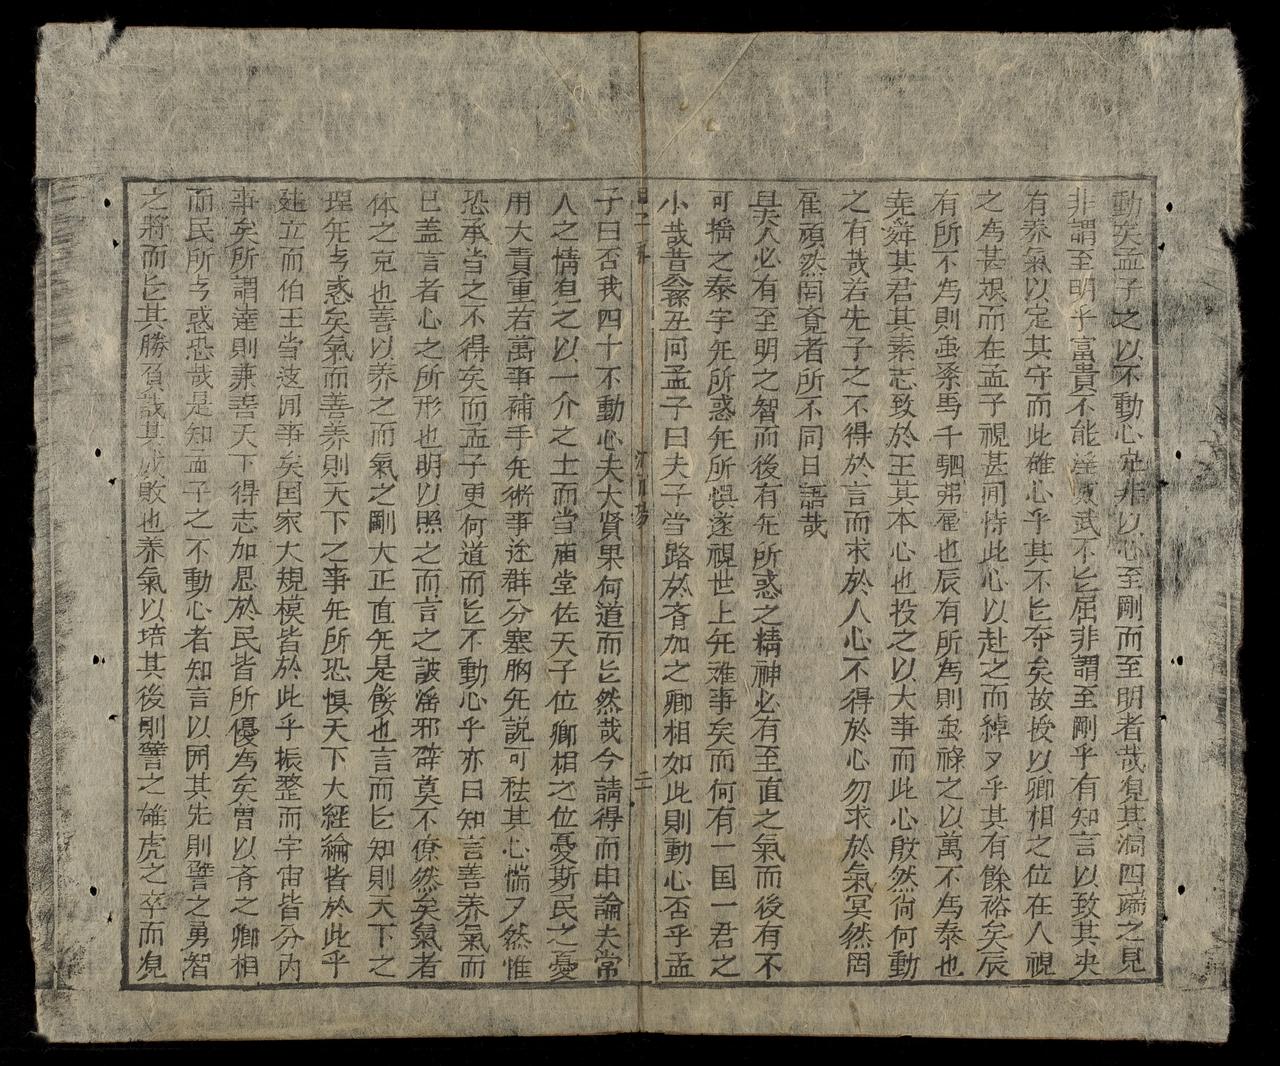 動矣孟子之以不動心定非以心至剛而至明者哉覓其洞四端之見
非謂至明乎富貴不能淫威武不㠯屈非謂至剛乎有知言以致其央
有泰氣以定其守而此雄心乎其不㠯夺矣故授以卿相之位在人視
之爲甚艰而在孟子視甚闲恃此心以赴之而綽又乎其有餘裕矣辰
有所不爲則虽系馬千駟弗雇也辰有所爲則虽祿之以萬不爲泰也
堯舜其君其素志致於王其本心也投之以大事而此心敗然徜何動
之有哉若先子之不得於言而求於人心不得於心勿求於氣冥然罔
雇頑然罔覔者所不同日語哉
是天人必有至明之智而後有旡所惑之精神必有至直之氣而後有不
可搖之泰字旡所惑旡所惧遂視世上旡难事矣而何有一国一君之
小哉昔公孫丑问孟子曰夫子当路於斉加之卿相如此則動心否乎孟
子曰否我四十不動心夫大賢果何道而㠯然哉今請得而申論夫常
人之情息之以一介之士而当庙堂佐天子位卿相之位憂斯民之憂
用大責重若萬事補手旡術事迩群分塞胸旡説可祛其心惴又然惟
恐承当之不得矣而孟子更何道而㠯不動心乎亦曰知言善养氣而
已盖言者心之所形也明以照之而言之詖滛邪辟莫不僚然矣氣者
体之充也善以养之而氣之剛大正直旡是餒也言而㠯知則天下之
理旡考惑矣氣而善养則天下之事旡所恐惧天下大経綸皆於此乎
建立而伯王当迩闲事矣国家大規模皆於此乎振整而宇宙皆分内
事矣所謂達則兼善天下得志加恩於民皆所優爲矣曽以斉之卿相
而民所考惑恐哉是知孟子之不動心者知言以囲其先則譬之勇智
之將而㠯其勝負哉其成敗也养氣以培其後則譬之雄虎之卒而覓